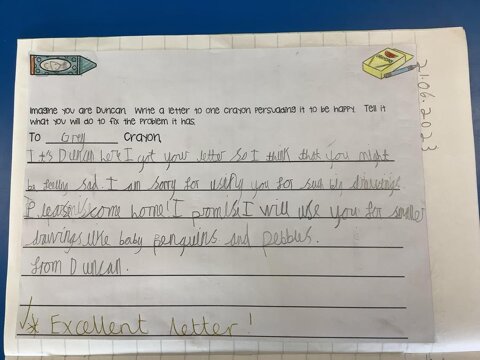 Imagine you are Duncan. Write a letter to one crayon persuading it to be happy. Tell it
what you will do to fix the problem it has.
To Grey Crayon,
It's Duncan here I got your letter so I think that you might
be feeling sad. I am sorry for using you for such big drawings
Please come home! I promise I will use you for smaller
drawings like baby penguins and pebbles.
from Duncan.
Excellent letter!
21.06.2023